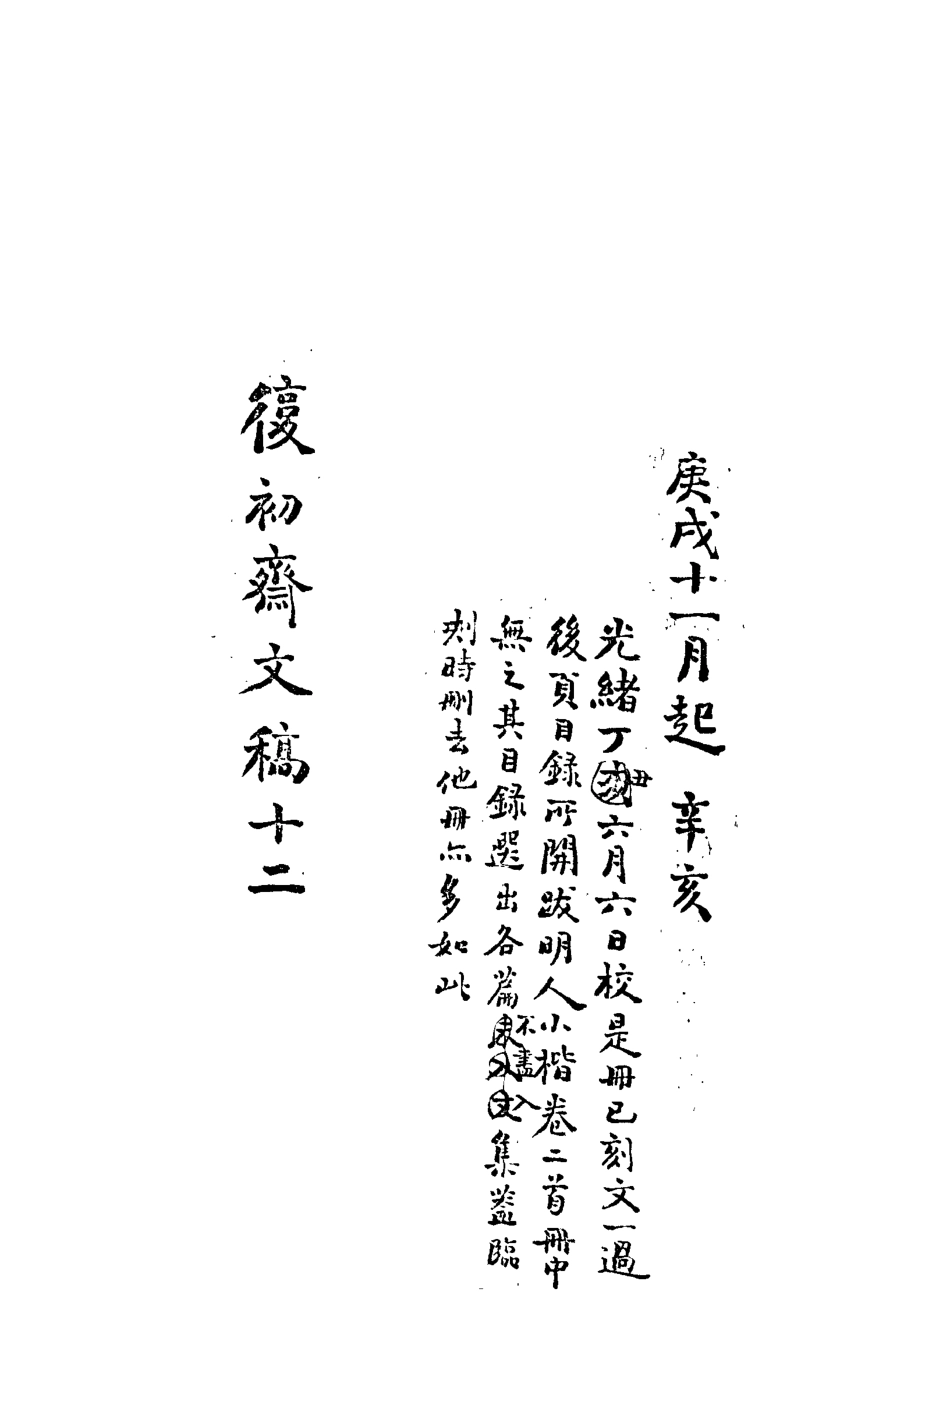 庚戌十一月起 辛亥
光緒丁丑六月六日校是冊已刻文一過
後頁目錄所開跋明人小楷卷二首冊中
無之其目錄選出各篇不盡入集蓋臨
刻時刪去他冊亦多如此
復初齋文稿十二